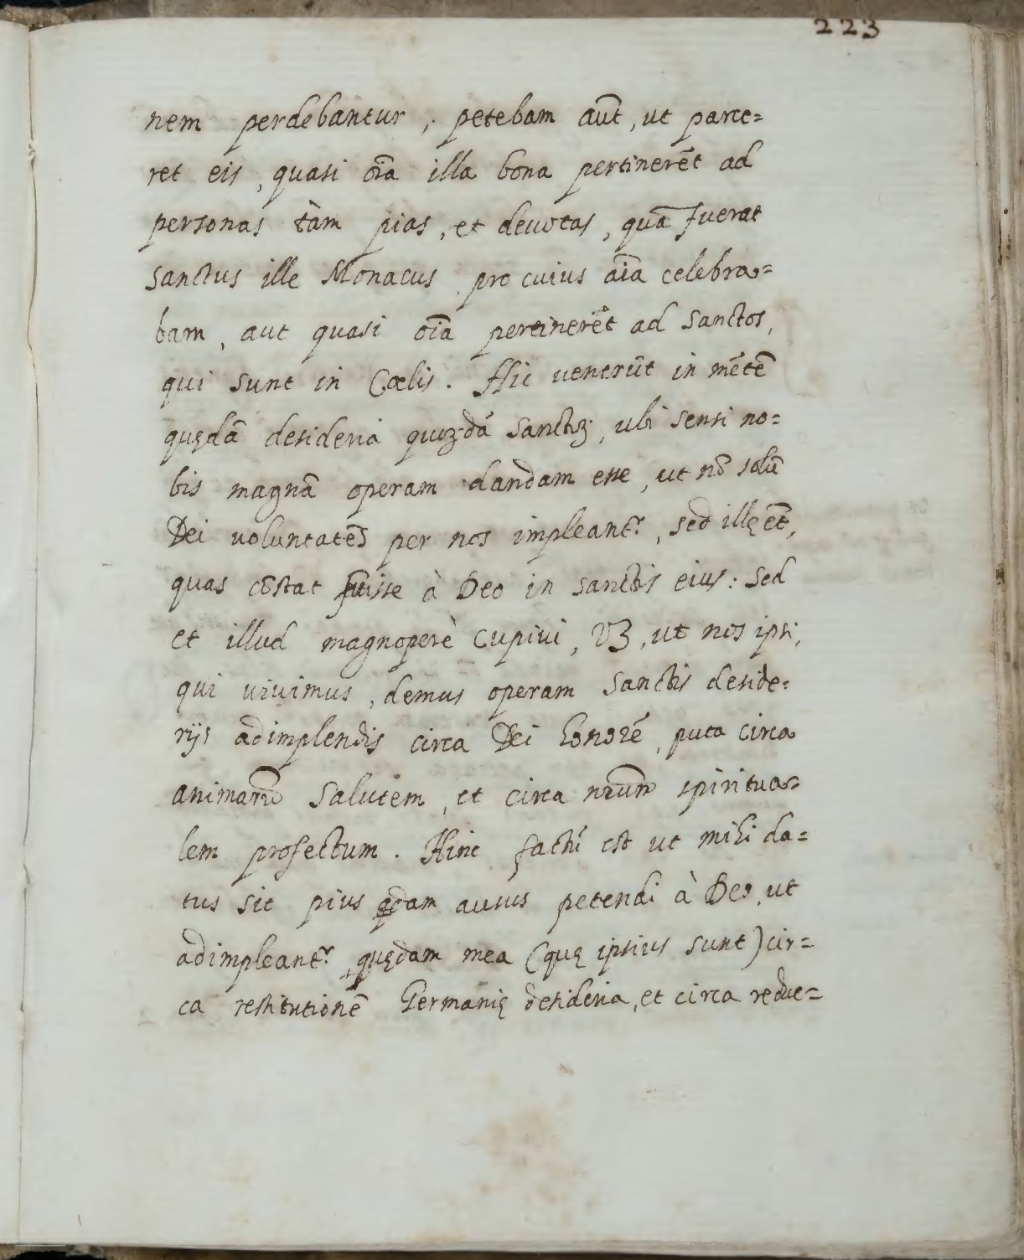 223
nem perdebantur; petebam aūt, ut parce=
ret eis, quasi oīa illa bona pertinerēt ad
personas tàm pias, et devotas, quā fuerat
Sanctus ille Monacus pro cuius aīa celebra=
bam, aut quasi oīa pertinerēt ad Sanctos,
qui sunt in Cœlis. Hic venerūt in mētē
quędā desideria quorūdā Sanctorū, ubi sensi no=
bis magnā operam dandam esse, ut nō solū
Dei voluntatē per nos impleantr, sed illę ēt,
quas cōstat fuisse à Deo in sanctis eius: Sed
et illud magnoperè cupivi, vz, ut nos ipsi,
qui vivimus, demus operam Sanctis deside=
rijs adimplendis circa Dei honorē, puta circa
animarū salutem, et circa nr̄um spiritua=
lem profectum. Hinc factū est ut mihi da=
tus sit pius qdam ausus petendi à Deo, ut
adimpleantr quędam mea (quę ipsius sunt) cir=
ca restitutionē Germanię desideria, et circa redue=